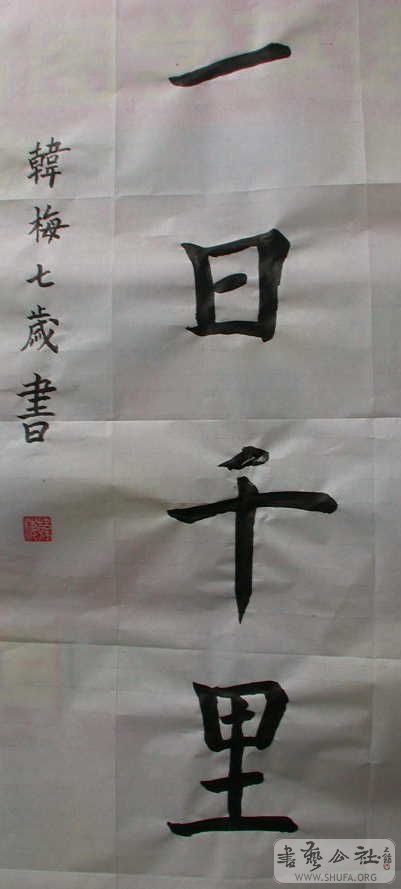 一日千里
韓梅七歲書
書藝公社
WWW.SHUFA.ORG